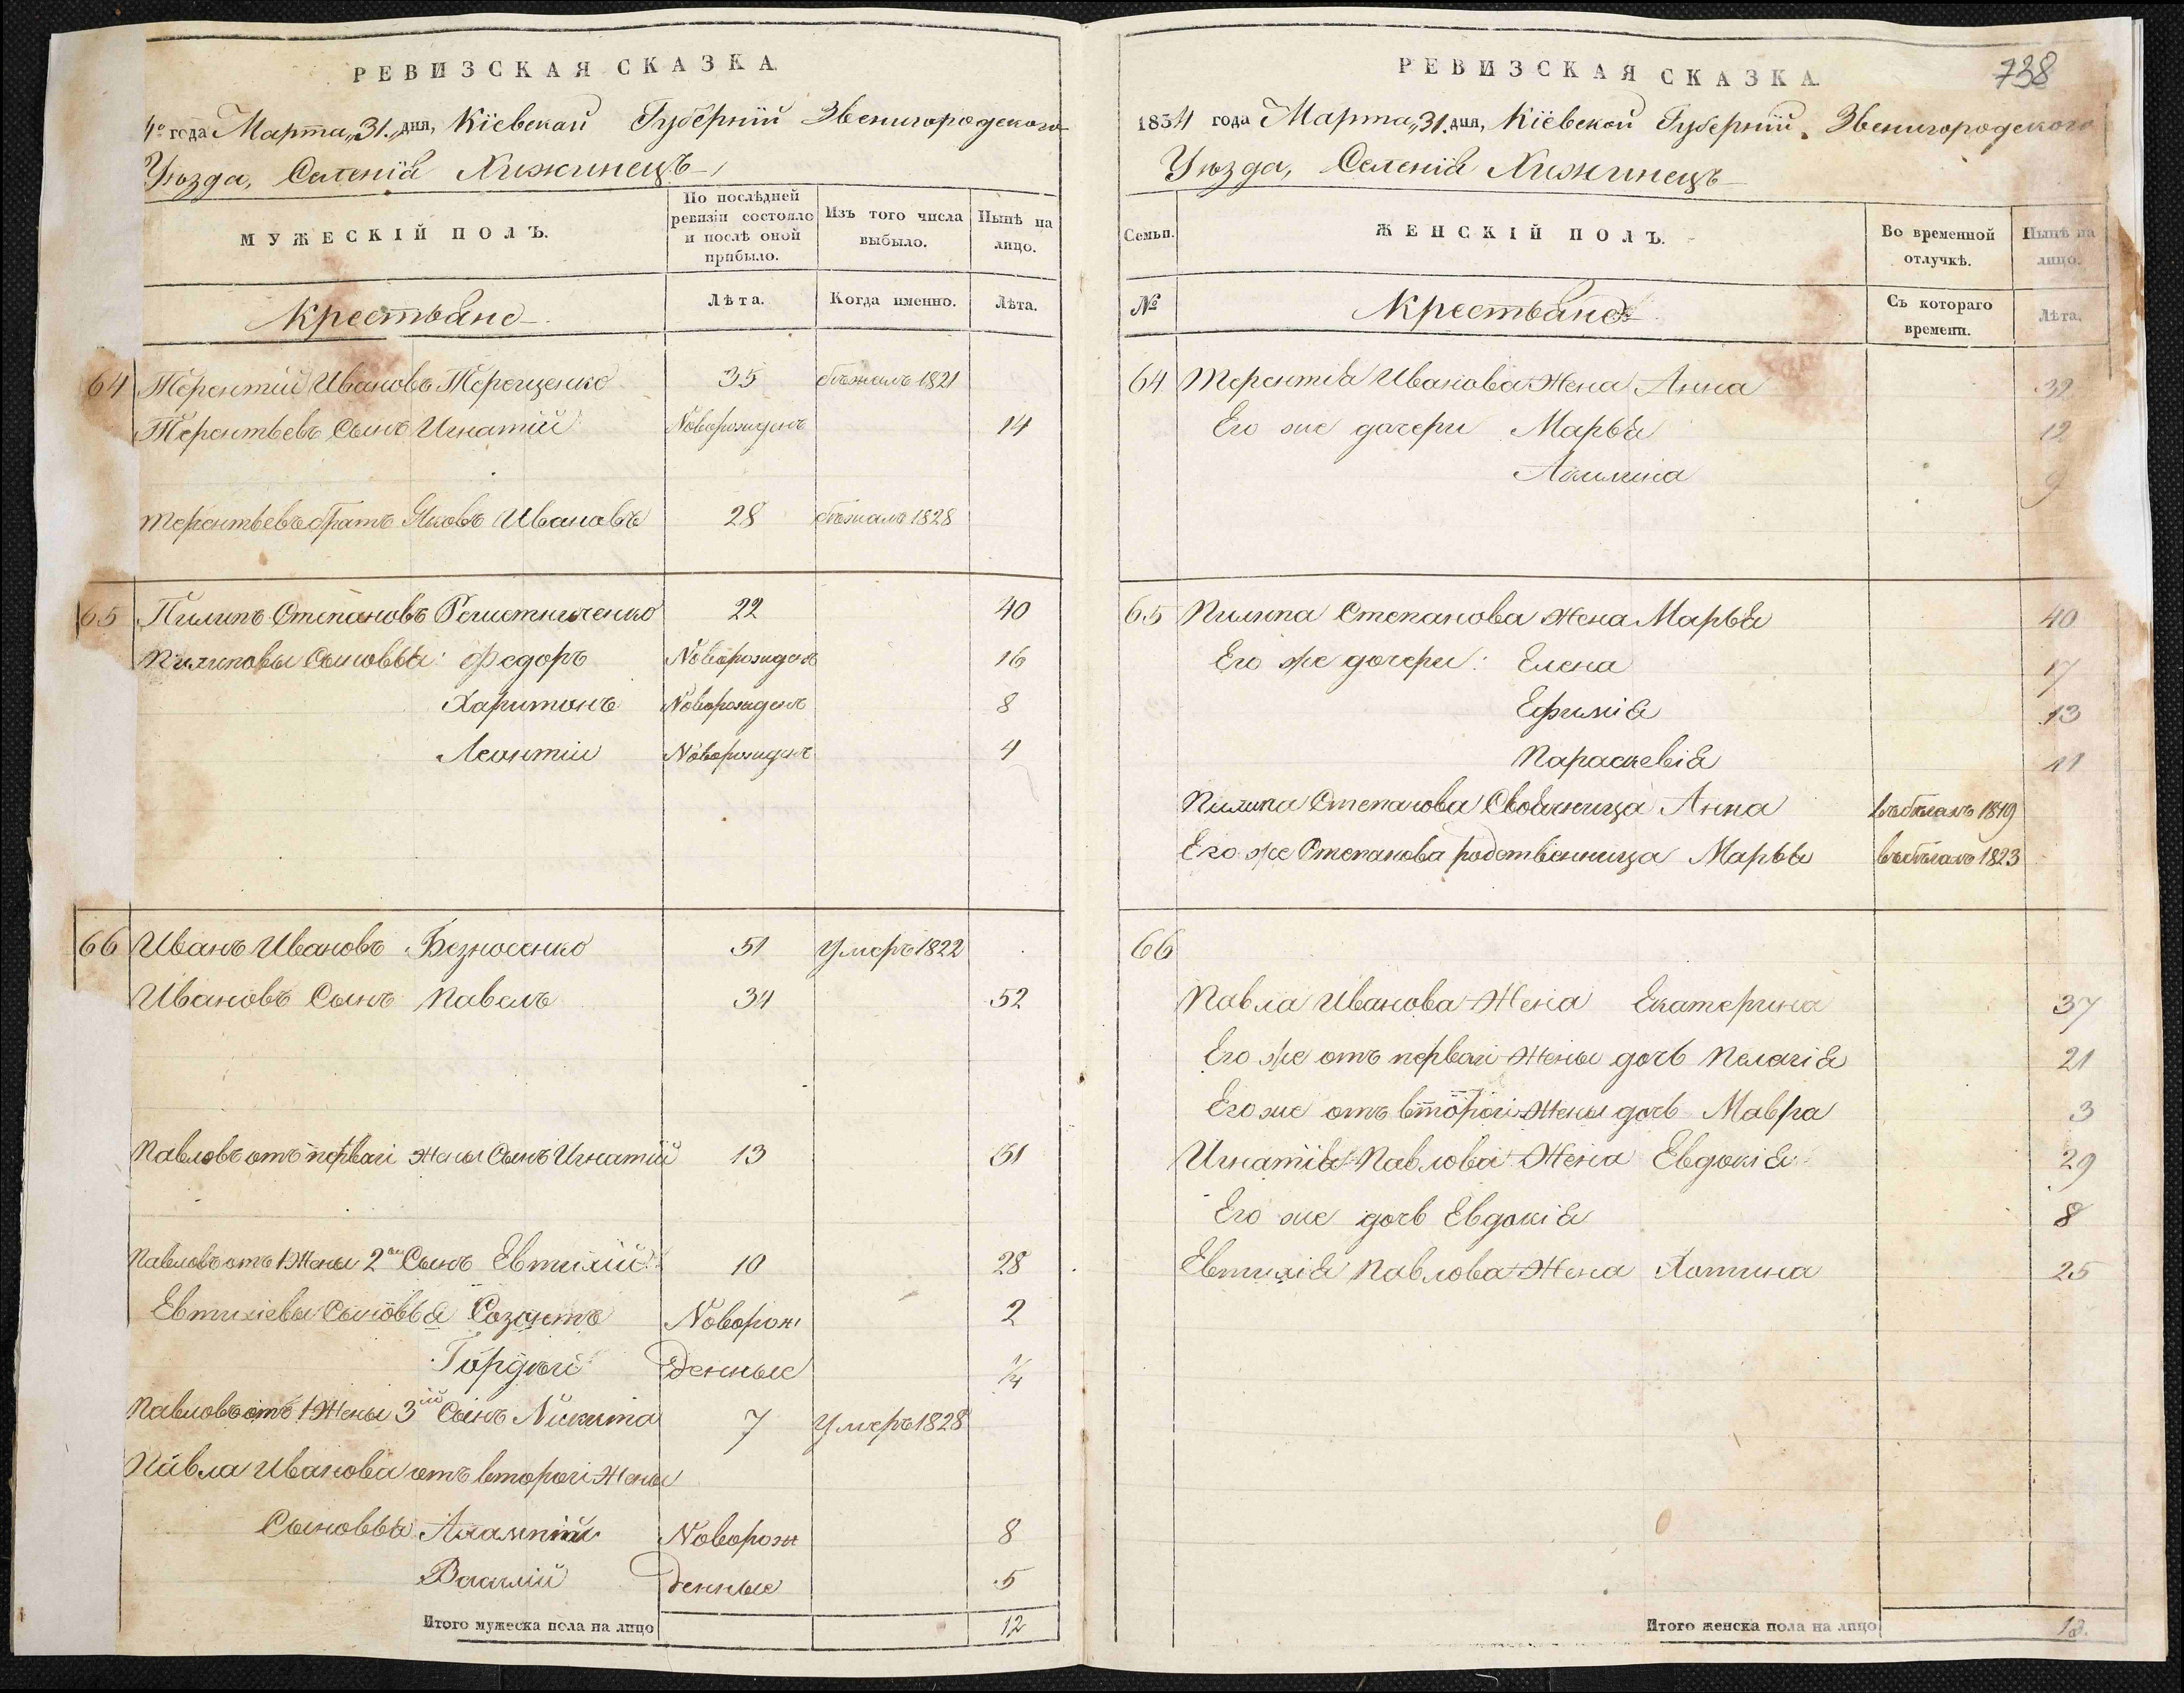 РЕВИЗСКАЯ СКАЗКА
4го года Марта „31„ дня, Кіевской Губерніи Звенигородского
Уѣзда, Селенія Хижинецъ
МУЖЕСКІЙ ПОЛЪ.
По послѣдней ревизіи состояло и послѣ оной прибыло.
Изъ того числа выбыло.
Нынѣ на лицо.
Крестьяне
Лѣта.
Когда именно.
Лѣта.
64 Терентій Ивановъ Терещенко 35 бѣжалъ 1821
Терентьевъ Сынъ Игнатій Новорожденъ 14
Терентьевъ братъ Яковъ Ивановъ 28 бѣжалъ 1828
65 Пилипъ Степановъ 22 40
Пилиповы Сыновья: Федоръ Новорожденъ 16
Харитонъ Новорожденъ 8
Леонтій Новорожденъ 4
66 Иванъ Ивановъ Безносенко 51 Умеръ 1822
Ивановъ Сынъ Павелъ 34 52
Павловъ отъ первой Жены Сынъ Игнатій 13 31
Павловъ отъ 1 Жены 2й Сынъ Евтихій 10 28
Евтихіевы Сыновья Созонтъ Новорож 2
Гордѣй денные 1/4
Павловъ отъ 1 Жены 3ій Сынъ Никита 7 Умеръ 1828
Павла Иванова отъ второй Жены
Сыновья Новорож 8
Василій денные 5
Итого мужеска пола на лицо 12
738
РЕВИЗСКАЯ СКАЗКА
1834 года Марта „31„ дня, Кіевской Губерніи Звенигородского
Уѣзда, Селенія Хижинецъ
Семьи.
ЖЕНСКІЙ ПОЛЪ.
Во временной отлучкѣ.
Нынѣ на лицо.
№
Крестьяне
Съ котораго времени.
Лѣта.
64 Терентія Иванова Жена Анна 39
Его же дочери Марья 12
Акилина 9
65 Пилипа Степанова Жена Марья 40
Его же дочери: Елена 17
Ефимія 13
Параскевія 11
Пилипа Степанова Своячница Анна въ бѣгахъ 1819
Его же Степанова родственница Марья въ бѣгахъ 1823
66
Павла Иванова Жена Екатерина 37
Его же отъ первой Жены дочь Пелагія 21
Его же отъ второй Жены дочь Мавра 3
Игнатія Павлова Жена Евдокія 29
Его же дочь Евдокія 8
Евтихія Павлова Жена Хотина 25
Итого женска пола на лицо 13.